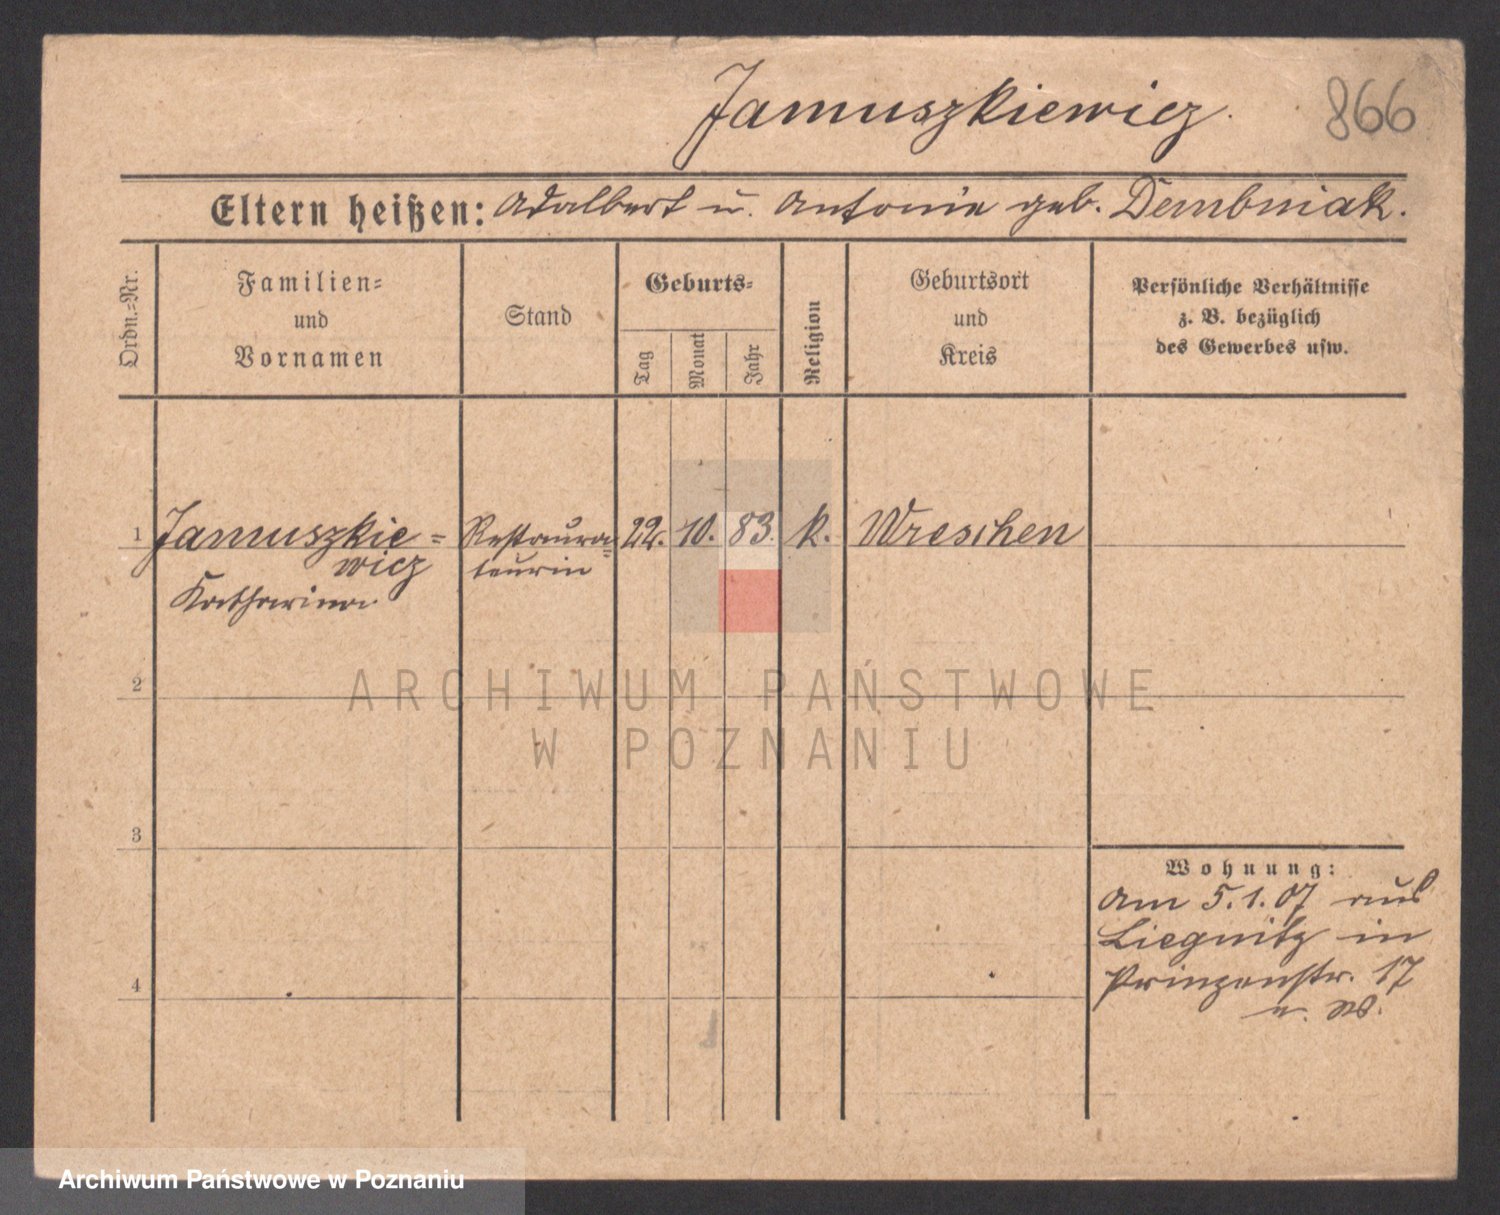 Januszkiewicz.
866
Eltern heißen: Adalbert u. Antonie geb. Dembniak.
Ordn.=Nr.
Familien=
und
Vornamen
Stand
Geburts=
Tag
Monat
Jahr
Religion
Geburtsort
und
Kreis
Persönliche Verhältnisse
z. B. bezüglich
des Gewerbes usw.
1
Januszkie=
wicz
Katharina
Restaura=
teurin
22. 10. 83. k. Wreschen
2
ARCHIWUM PAŃSTWOWE
W POZNANIU
3
Wohnung:
am 5.1.07 aus
Liegnitz in
Prinzenstr. 17
4
Archiwum Państwowe w Poznaniu